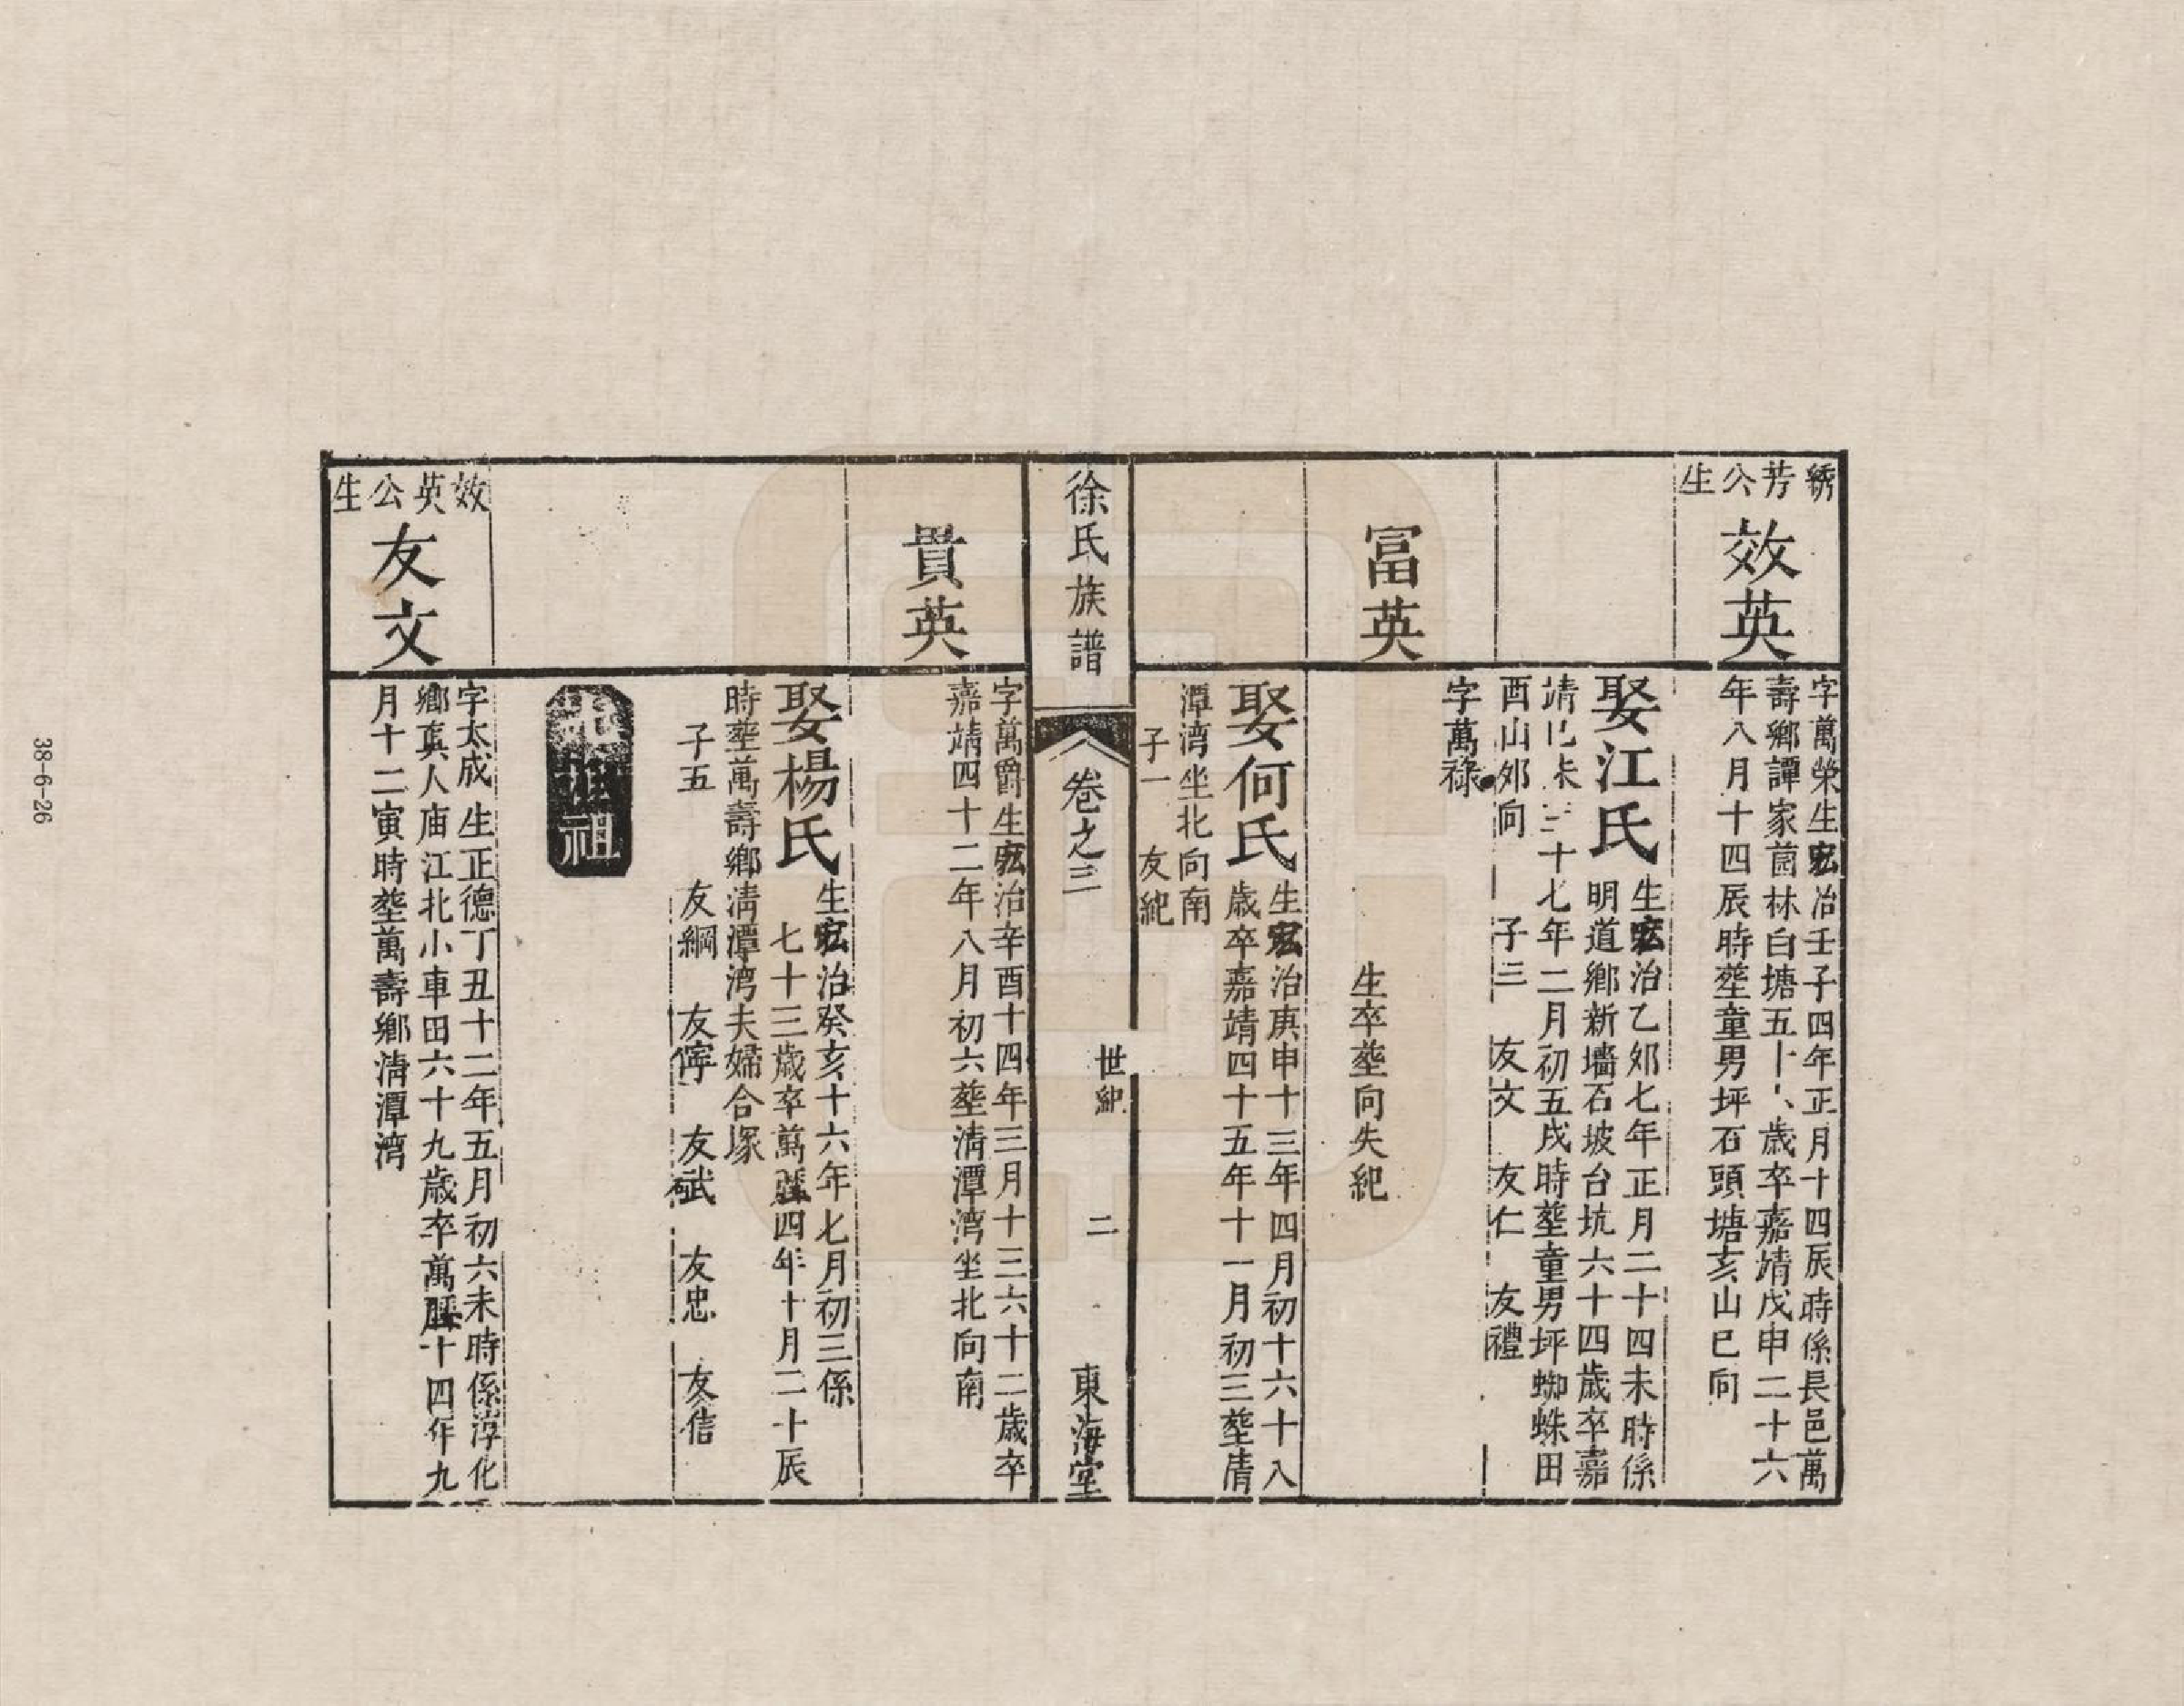 綉芳公生
效英
字萬榮生宏治壬子四年正月十四辰時係長邑萬
壽鄉譚家菌林白塘五十歲卒嘉靖戊申二十六
年八月十四辰時塟童男坪石頭塘亥山巳向
娶江氏
生宏治乙夘七年正月二十四未時係
明道鄉新墻石坡台坑六十四歲卒嘉
靖巳未三十七年二月初五戌時塟童男坪蜘蛛田
酉山夘向 子三 友文 友仁 友禮
富英
字萬祿
生卒塟向失紀
娶何氏
生宏治庚申十三年四月初十六十八
歲卒嘉靖四十五年十一月初三塟清
潭湾坐北向南
子一 友紀
徐氏族譜
卷之三
世紀
二
東海堂
貴英
字萬爵生宏治辛酉十四年三月十三六十二歲卒
嘉靖四十二年八月初六塟清潭湾坐北向南
娶楊氏
生宏治癸亥十六年七月初三係
七十三歲卒萬四年十月二十辰
時塟萬壽鄉清潭湾夫婦合塚
子五 友綱 友寧 友斌 友忠 友信
祖
效英公生
友文
字太成 生正德丁丑十二年五月初六未時係淳化
鄉真人庙江北小車田六十九歲卒萬十四年九
月十二寅時塟萬壽鄉清潭湾
38-6-26